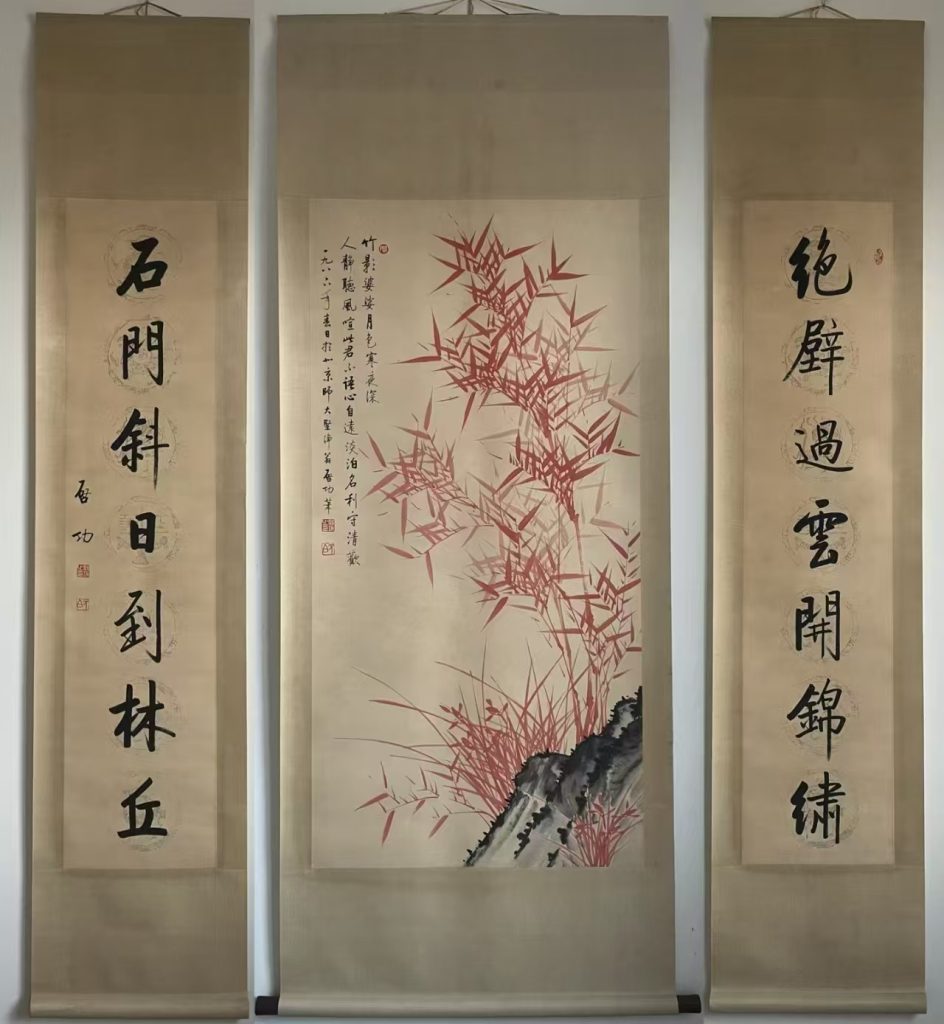 绝壁過雲開錦繍
竹影婆娑月色寒夜深
人靜聽風喧此君不語心自遠淡泊名利守清歡
一九八六年春日於北京師大堅淨翁啓功筆
石門斜日到林丘
啓功